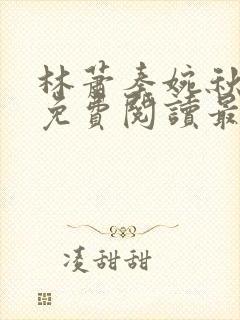 林蕭秦婉秋
免費閱讀最
凌甜甜